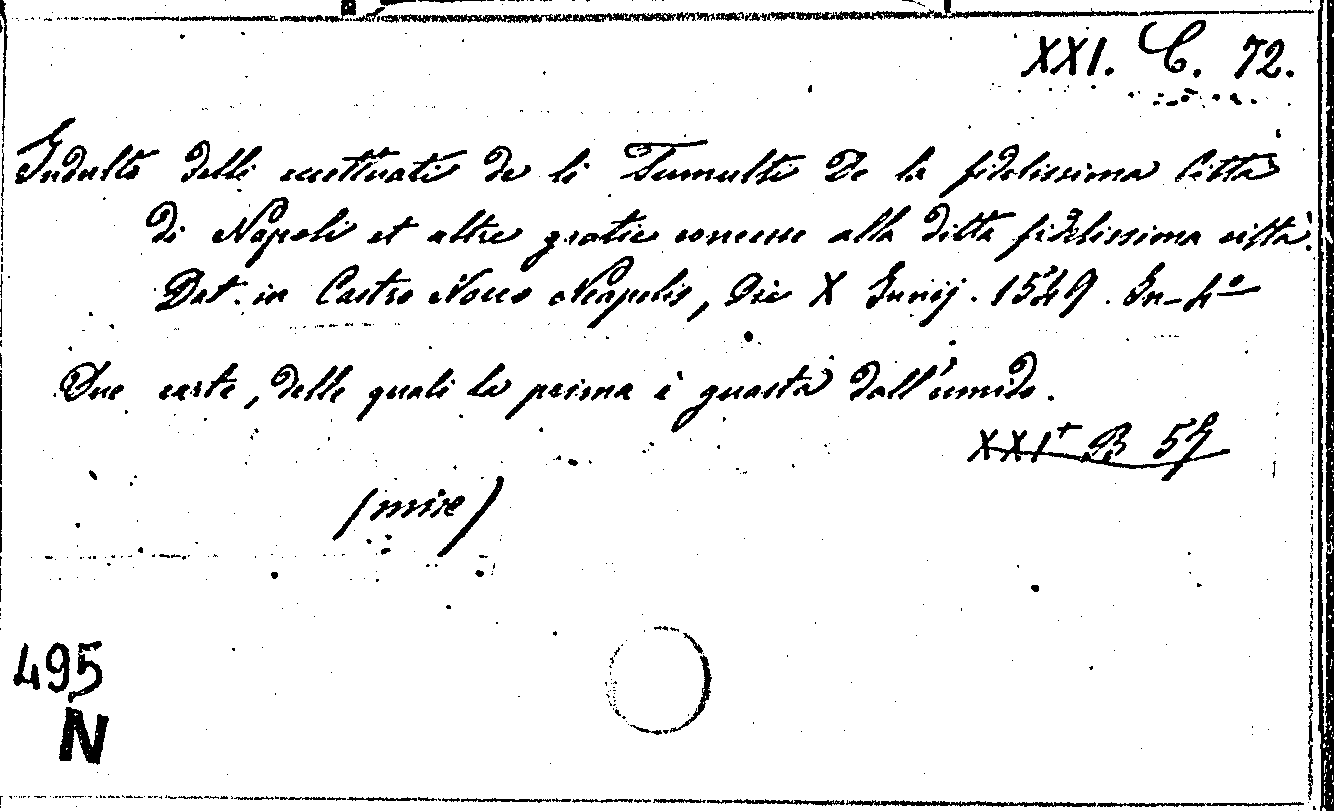 XXI. C. 72.
Indulto delli eccettuati de li Tumulti De la fidelissima Citta
di Napoli et altre gratie concesse alla ditta fidelissima citta.
Dat. in Castro Novo Neapolis, Die X Junij. 1549. In-4º
Due carte, delle quali la prima è guasta dall'umido.
XXI+ B 57
(misc)
495
N